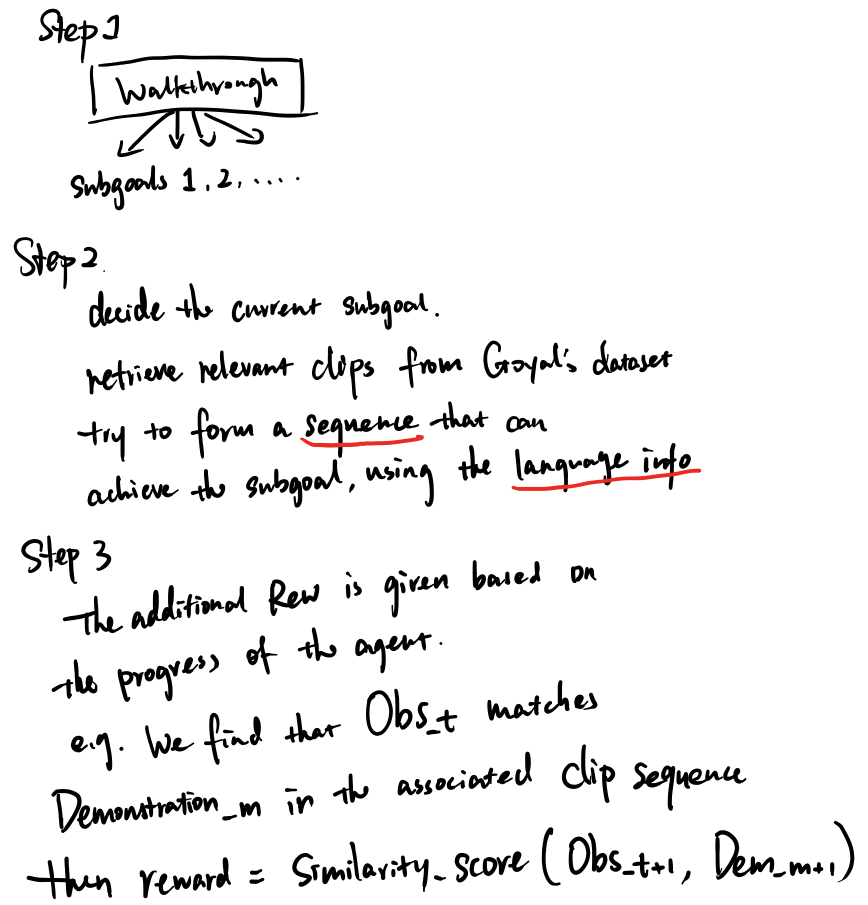 Step 1
Walkthrough
Subgoals 1, 2, .....
Step 2
decide the current subgoal.
retrieve relevant clips from Goyal's dataset
try to form a sequence that can
achieve the subgoal, using the language info
Step 3
The additional Rew is given based on
the progress of the agent.
e.g. We find that Obs_t matches
Demonstration_m in the associated clip sequence
then reward = Similarity_score (Obs_t+1, Dem_m+1)